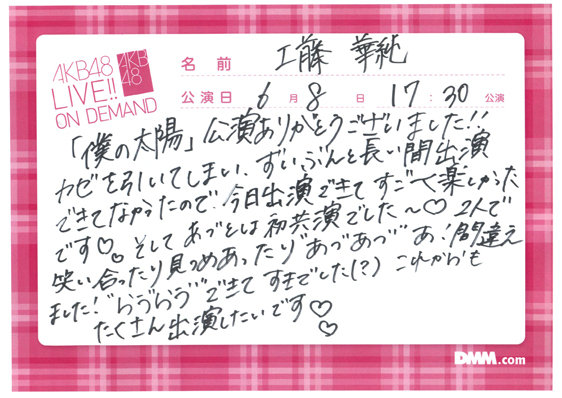 AKB48
LIVE!!
ON DEMAND
AKB
48
名前 工藤 華純
公演日 6月8日 17:30公演
「僕の太陽」公演ありがとうございました!!
カゼを引いてしまい、ずいぶんと長い間出演
できてなかったので、今日出演できてすごく楽しかった
です♡。そしてあづとは初共演でした～♡ 2人で
笑い合ったり見つめあったり"あづあづ"あ!間違え
ました!"らぶらぶ"できてすきでした(?) これからも
たくさん出演したいです♡♡
DMM.com